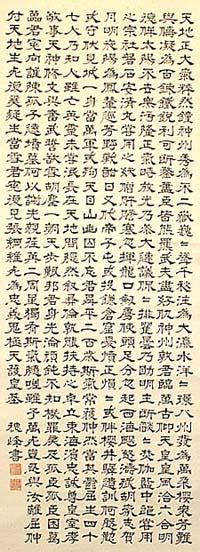 天地正大氣粹然鍾神州秀為不二嶽巍〻聳千秋注為大瀛水洋〻環八洲發為萬朶櫻衆芳難
與儔凝為百鍊鐵銳利可斷鍪藎臣皆熊羆武夫盡好仇神州孰君臨萬古仰天皇皇風洽六合明
德侔太陽不世無汚隆正氣時放光乃參大連議侃〻排瞿曇乃助明主斷燄〻焚伽藍中郎嘗用
之宗社磐石安清丸嘗用之妖僧肝膽寒忽揮龍口劍虜使頭足分忽起西海颶怒濤殲胡氛志賀
月明夜陽為鳳輦巡芳野戰酣日又代帝子屯或投鎌倉窟憂憤正愪〻或伴櫻井驛遺訓何殷懃
或守伏見城一身當萬軍或殉天目山幽囚不忘君承平二百歲斯氣常獲伸然當其鬱屈生四十
七人乃知人雖亡英靈未嘗泯長在天地間凜然敘彝倫孰能扶持之卓立東海濱忠誠尊皇室孝
敬事天神修文與奮武誓欲清胡塵一朝天步艱邦君身先淪頑鈍不知機罪戾及孤臣孤臣困葛
藟君冤向誰陳孤子遠墳墓何以謝先親荏苒二周星獨有斯氣隨嗟予雖萬死豈忍與汝離屈伸
付天地生死復奚疑生當雪君冤復見張綱維死為忠義鬼極天護皇基
峰書